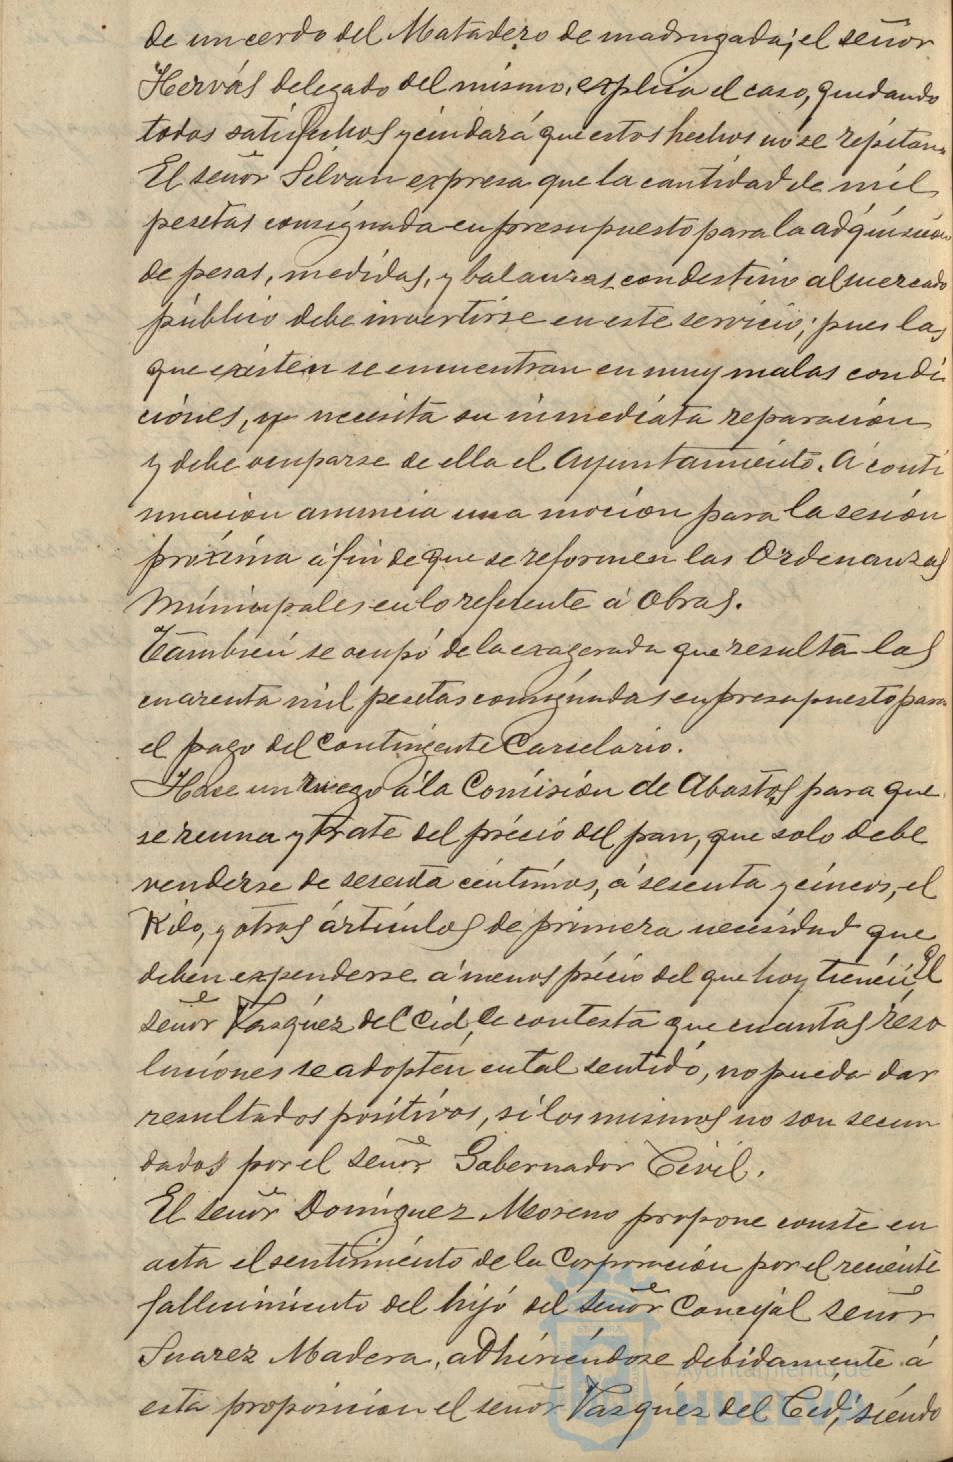 de un cerdo del Matadero de madrugada; el señor
Hervás delegado del mismo, explica el caso, quedando
todos satisfechos y cuidará que estos hechos no se repitan.
El señor Silvan expresa que la cantidad de mil
pesetas consignada en presupuesto para la adquisicion
de pesas, medidas, y balanzas con destino al mercado
público debe invertirse en este servicio; pues las
que existen se encuentran en muy malas condi
ciones, y necesita su inmediata reparación
y debe ocuparse de ella el Ayuntamiento. A conti
nuación anuncia una moción para la sesión
próxima á fin de que se reformen las Ordenanzas
Municipales en lo referente á Obras.
También se ocupó de la exagerada que resulta las
cuarenta mil pesetas consignadas en presupuesto para
el pago del Contingente Carcelario.
Hace un ruego á la Comisión de Abastos para que
se reuna y trate del précio del pan, que solo debe
venderse de sesenta céntimos, á sesenta y cinco, el
Kilo, y otros ártículos de primera necesidad que
deben expenderse á menos précio del que hoy tienen, El
señor Vasquez del Cid, le contesta que cuantas réso
luciones se adopten en tal sentido, no pueda dar
resultados positivos, si los mismos no son secun
dados por el señor Gobernador Civil.
El señor Domínguez Moreno propone conste en
acta el sentimiento de la Corporación por el reciente
fallecimiento del hijo del señor Concejal señor
Suarez Madera, adhiriéndose debidamente á
esta proposicion el señor Vasquez del Cid, siéndo
Ayuntamiento de
HUELVA